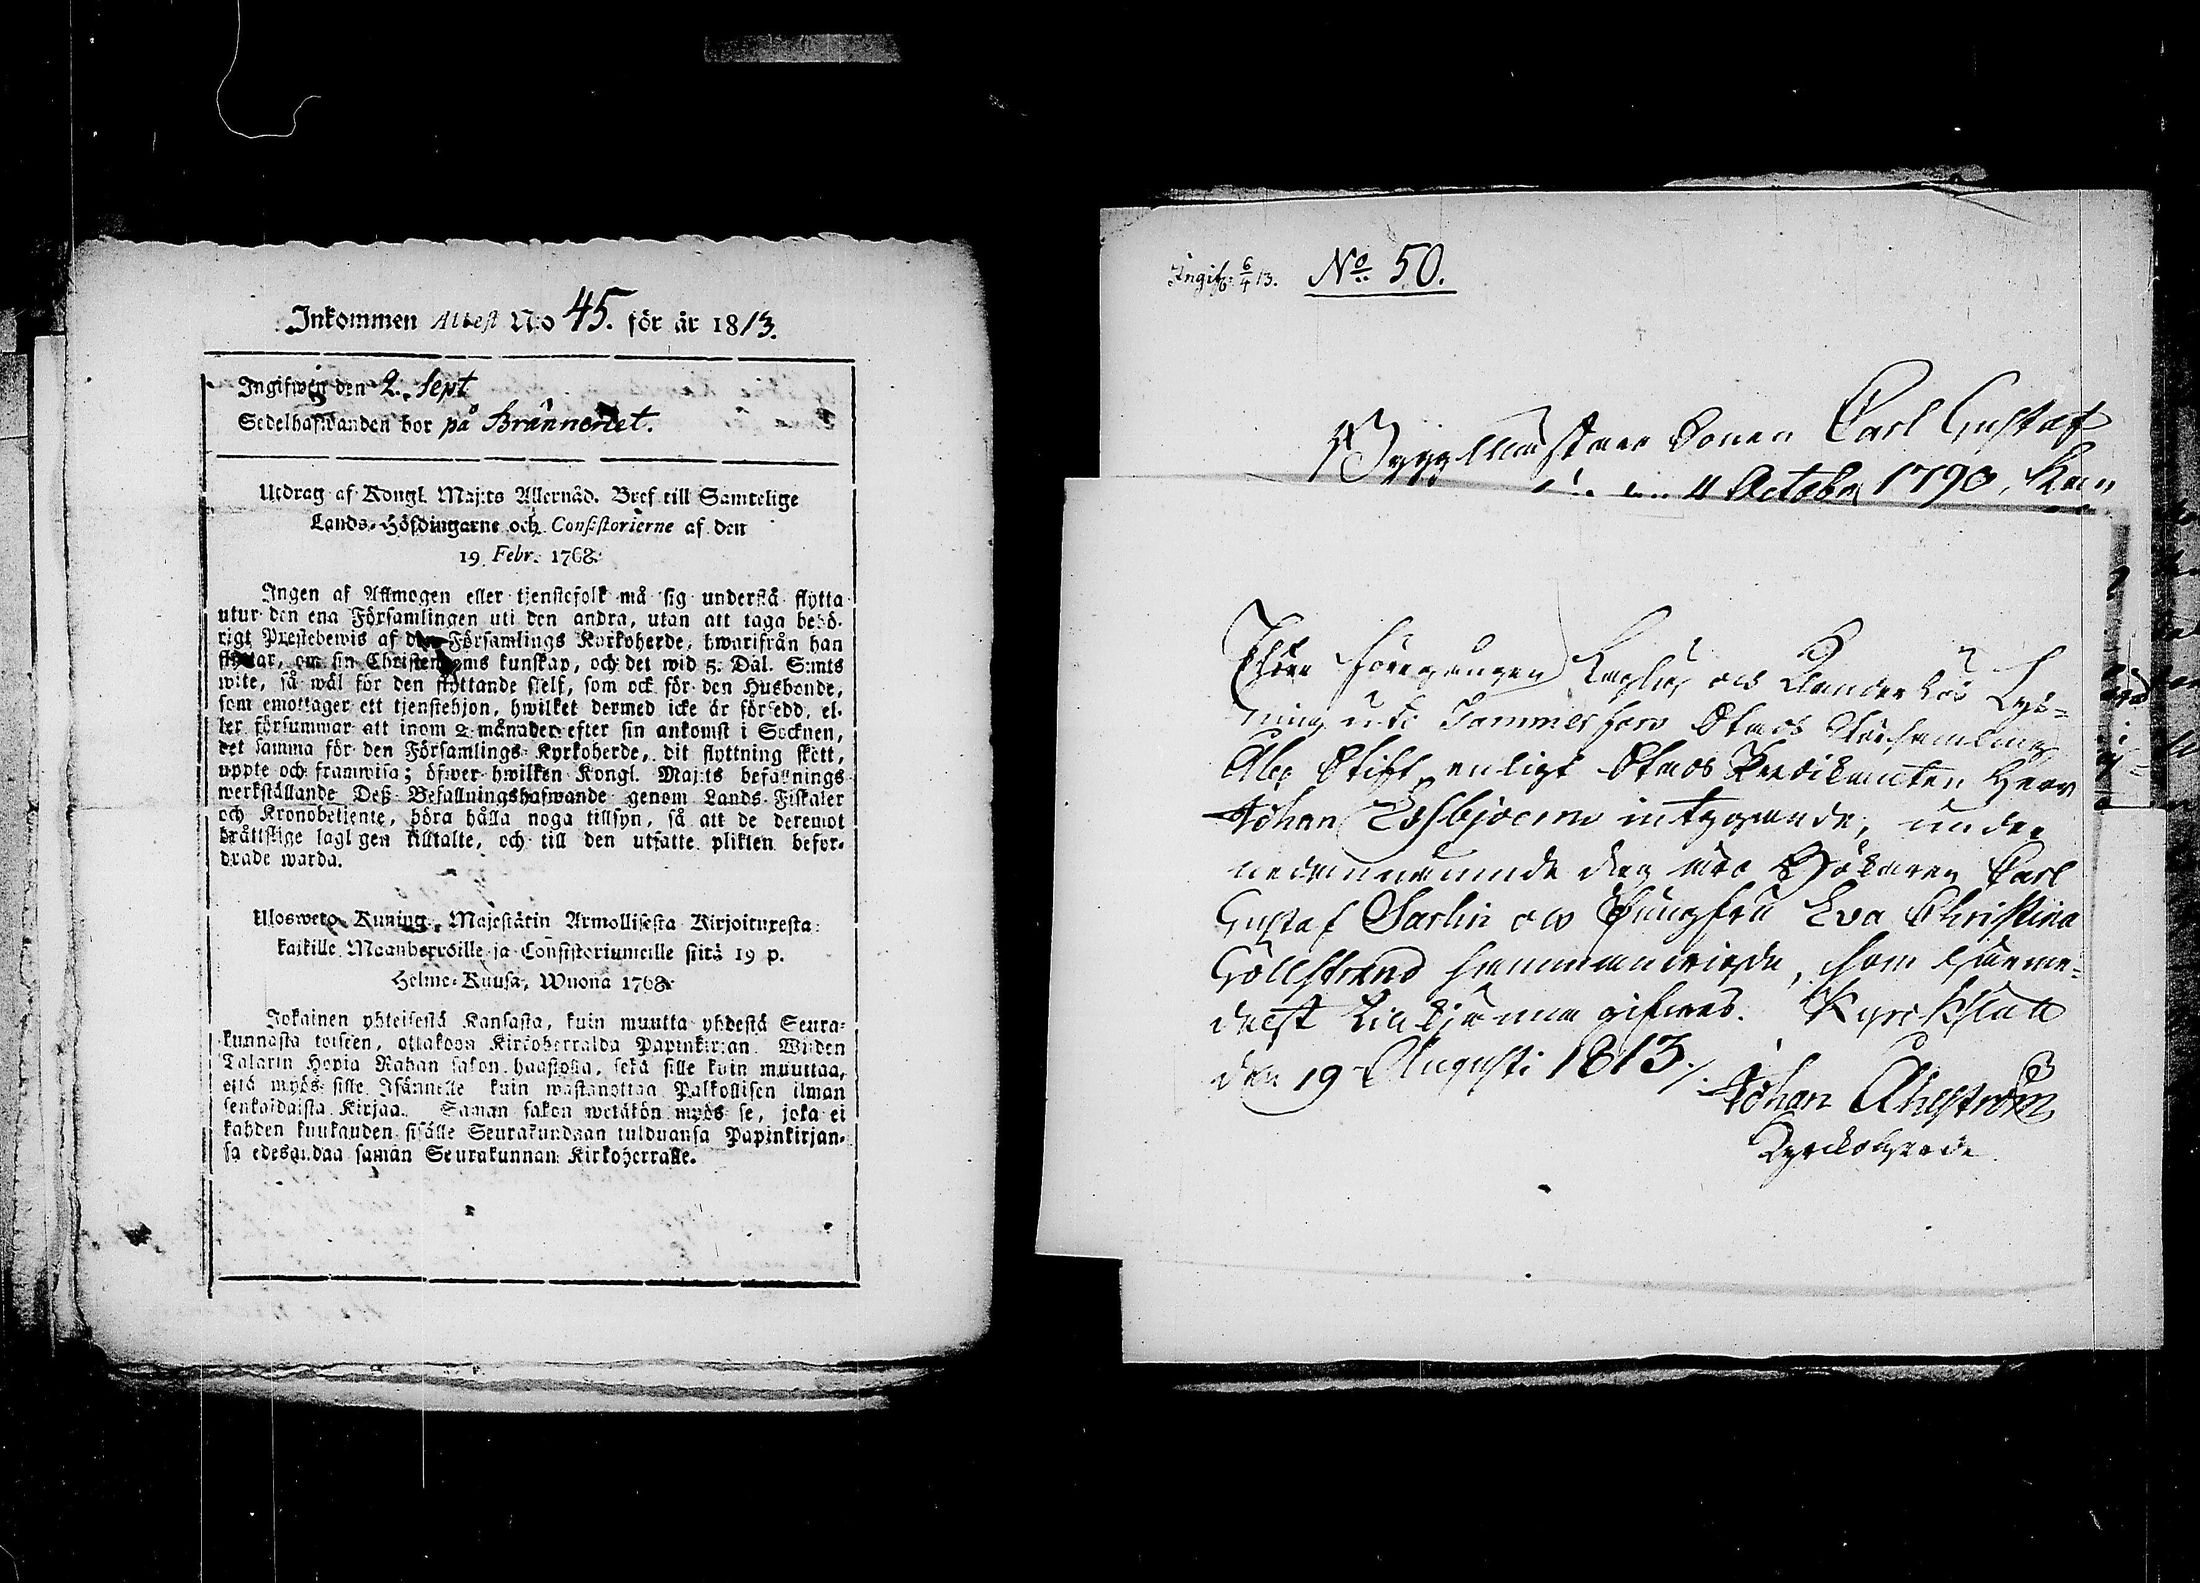 Inkommen Attest N:o 45. för år 1813.
Ingifwen den 2. Sept
Sedelhafwanden bor på Bränneriet.
Utdrag af Kongl. Maj:ts Allernåd. Bref till Samtelige
Lands-Höfdingarne och Consistorierne af den
19 Febr. 1768.
Ingen af Allmogen eller tjenstefolk må sig understå flytta
utur den ena Församlingen uti den andra, utan att taga behö-
rigt Prestebewis af den Församlings Kyrkoherde, hwarifrån han
flyttar, om sin Christendoms kunskap, och det wid 5. Dal. S:mts
wite, så wäl för den flyttande sielf, som ock för den Husbonde,
som emottager ett tjenstehjon, hwilket dermed icke är försedd, el-
ler försummar att inom 2 månader efter sin ankomst i Socknen,
det samma för den Församlings Kyrkoherde, dit flyttning skett,
uppte och framwisa; öfwer hwilken Kongl. Maj:ts befallnings
werkställande Deß Befallningshafwande genom Lands-Fiskaler
och Kronobetiente, böra hålla noga tillsyn, så att de deremot
bråttslige lagligen tilltalte, och till den utsatte plikten befor-
drade warda.
Ulosweto Kuning. Majestätin Armollisesta Kirjoituxesta
kaikille Maanherroille ja Consistoriumeille siitä 19 p.
Helme-Kuusa, Wuona 1768.
Jokainen yhteisestä Kansasta, kuin muutta yhdestä Seura-
kunnasta toiseen, ottakoon Kirkoherralda Papinkirjan Wijden
Talarin Hopia Rahan sakon haastolla, sekä sille kuin muuttaa,
että myös sille Isännelle kuin wastanottaa Palkollisen ilman
senkaidaista Kirjaa. Saman sakon wetäkön myös se, joka ei
kahden kuukauden sisälle Seurakundaan tulduansa Papinkirjan-
sa edesandaa saman Seurakunnan Kirkoherralle.
Ingif: 6/4 13. No 50.
Byggmästare Sonen Carl Gustaf
4 Octobr 1790,
Efter föregången laglig och klanderlös Lys-
ning uti Tammerfors Stads Församling
Åbo Stift, enligt Stads Predikanten Herr
Johan Essbjörns intygande, under
nedannämnde dag äro Bökaren Carl
Gustaf Sarlin och Jungfru Eva Christina
Göllstrand sammanwigde, som härme-
delst tilkjänna gifwes. Kyrkslätt
den 19 Augusti 1813./.
Johan Åhlström
Kyrkoherde